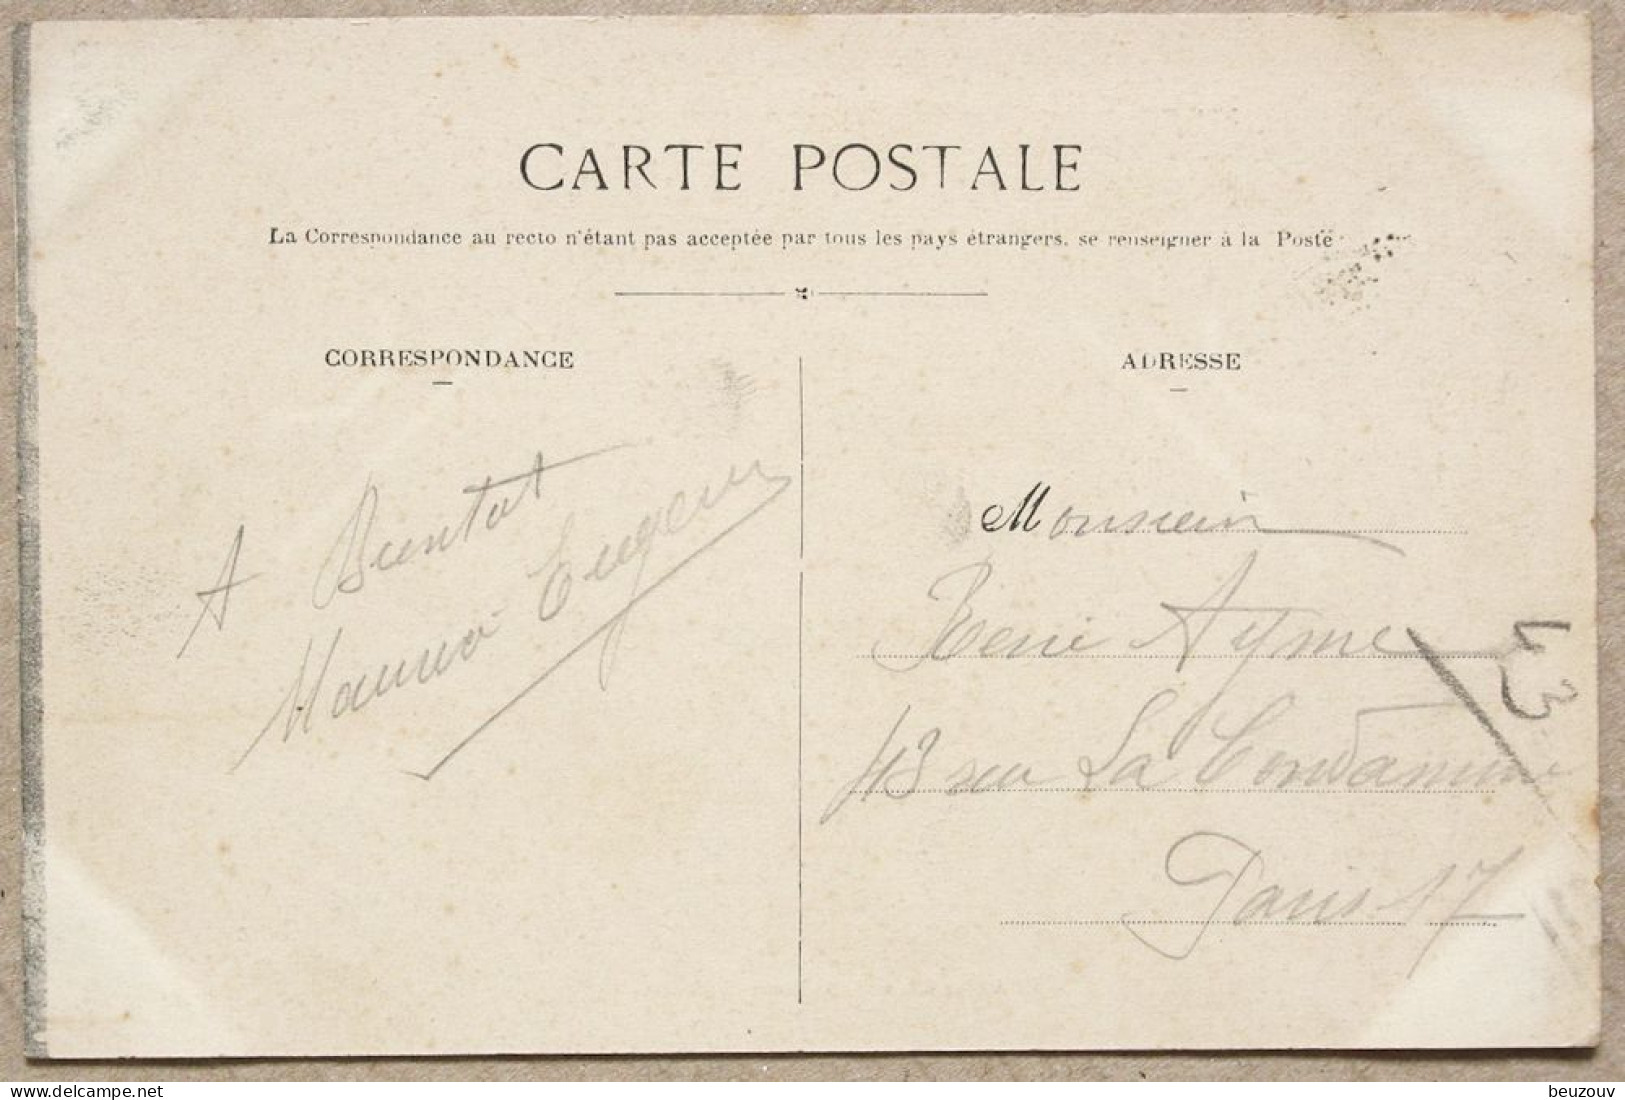 CARTE POSTALE
La Correspondance au recto n'étant pas acceptée par tous les pays étrangers, se renseigner à la Poste
CORRESPONDANCE
A Bientot
Eugene
ADRESSE
Monsieur
René Ayme
43 rue La Condamine
Paris 17
43
delcampe.net
beuzouv